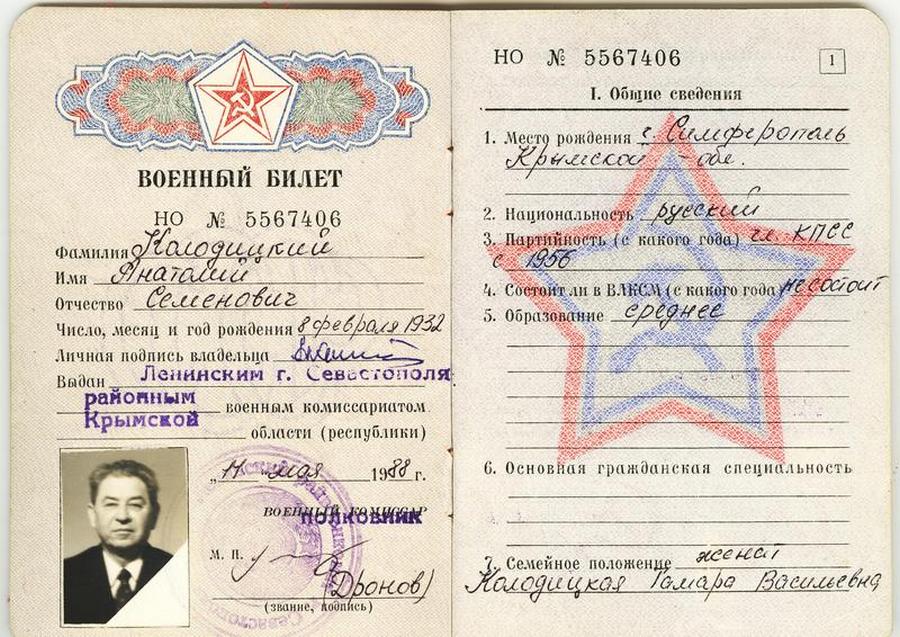 ВОЕННЫЙ БИЛЕТ
НО № 5567406
Фамилия Колодицкий
Имя Анатолий
Отчество Семенович
Число, месяц и год рождения 8 февраля 1932
Личная подпись владельца
Выдан Ленинским г. Севастополя
районным военным комиссариатом
Крымской области (республики)
„17“ мая 1988 г.
ВОЕННЫЙ КОМИССАР
ПОЛКОВНИК
М. П. (Дронов)
(звание, подпись)
НО № 5567406
1
I. Общие сведения
1. Место рождения г. Симферополь
Крымской - обл.
2. Национальность русский
3. Партийность (с какого года) чл. КПСС
с 1956
4. Состоит ли в ВЛКСМ (с какого года) не состоит
5. Образование среднее
6. Основная гражданская специальность
7. Семейное положение женат
Колодицкая Тамара Васильевна